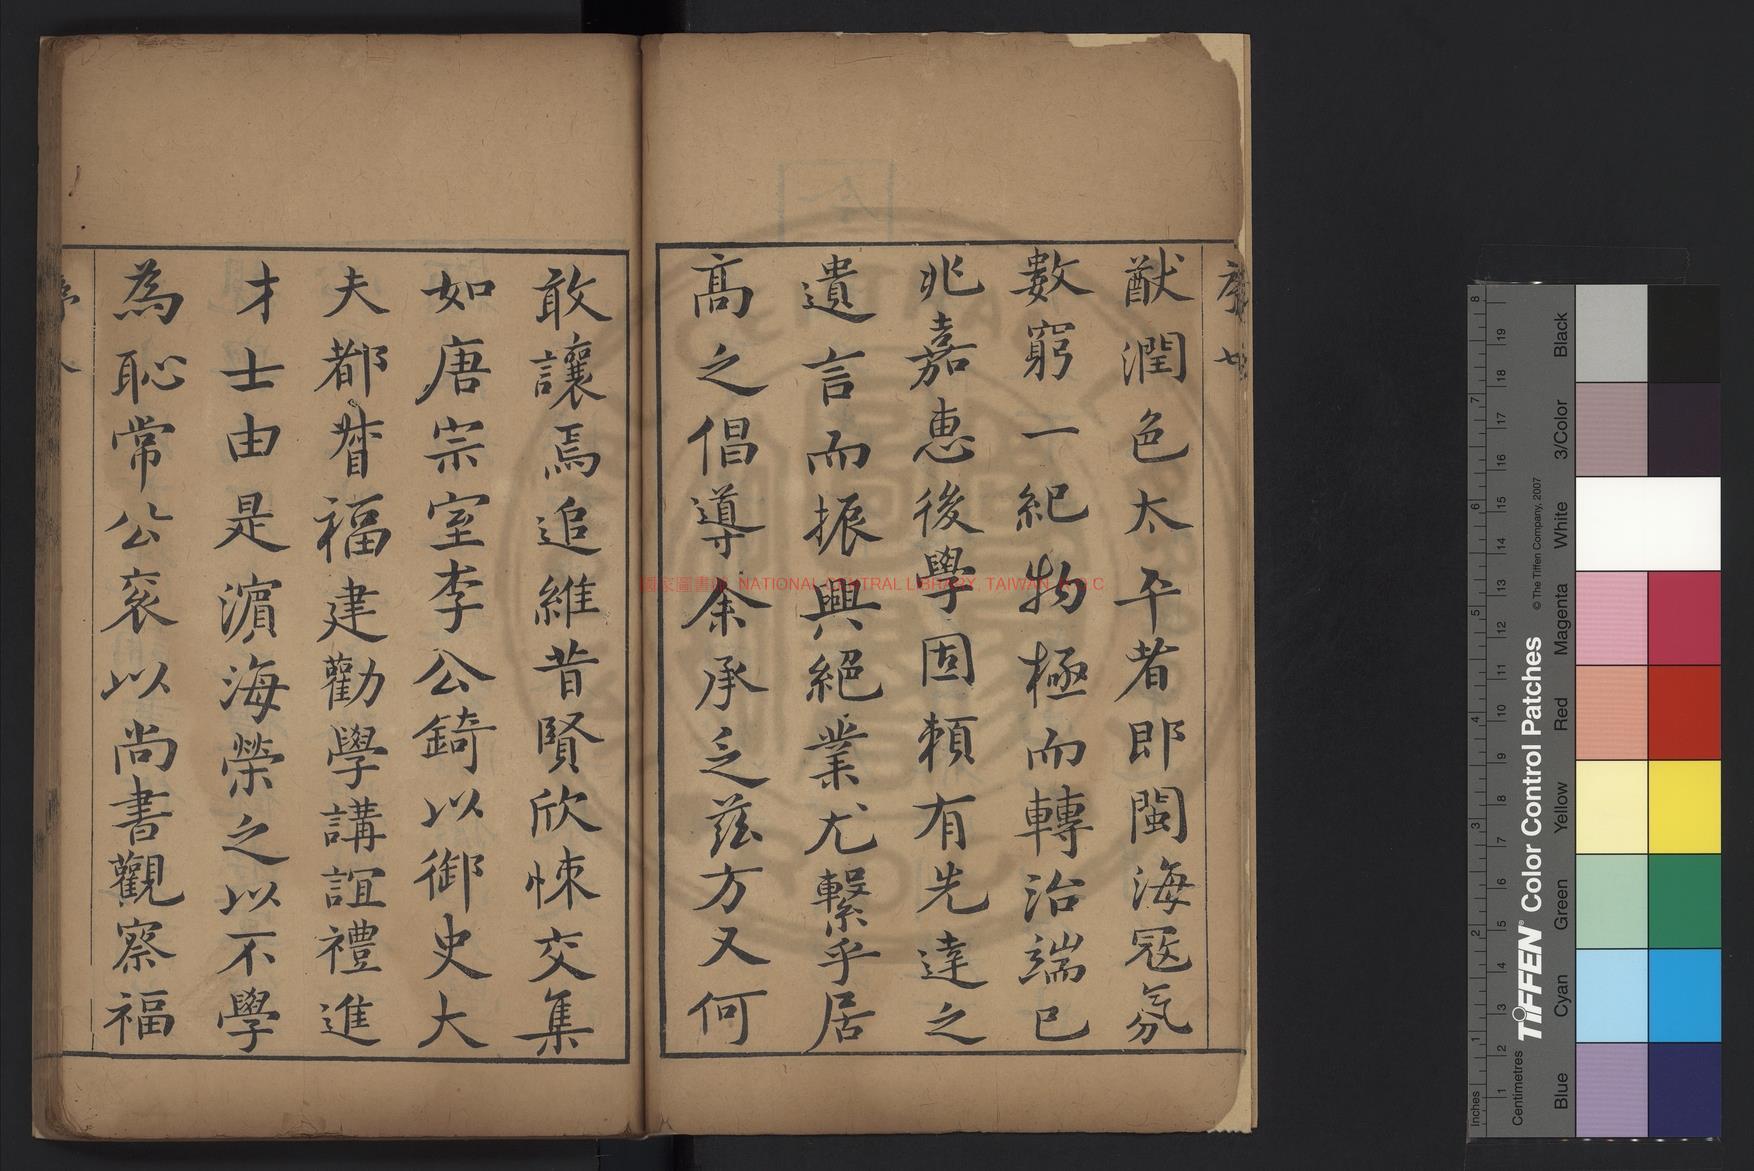 猷潤色太平者即閩海寇氛
數窮一紀物極而轉治端已
兆嘉惠後學固頼有先達之
遺言而振興絕業尤繫乎居
高之倡導余承乏茲方又何
敢讓焉追維昔賢欣悚交集
如唐宗室李公錡以御史大
夫都督福建勸學講誼禮進
才士由是濵海榮之以不學
為恥常公袞以尚書觀察福
國家圖書館 NATIONAL CENTRAL LIBRARY, TAIWAN, R.O.C
Inches
Centimetres
TIFFEN® Color Control Patches
© The Tiffen Company, 2007
Blue
Cyan
Green
Yellow
Red
Magenta
White
3/Color
Black